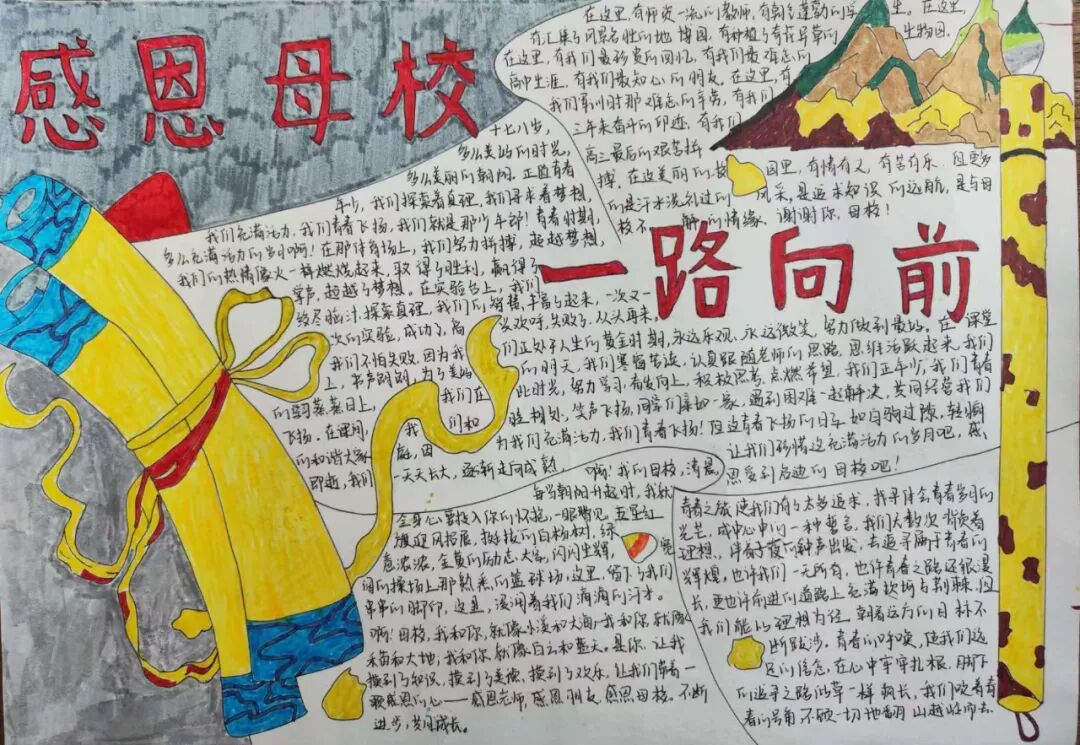 感恩母校
一路向前
在这里,有师资一流的教师,有朝气蓬勃的学生。在这里,
有汇集了风景名胜的地博园,有种植了奇花异草的生物园。
在这里,有我们最珍贵的回忆,有我们最难忘的
高中生涯,有我们最知心的朋友,在这里,有
我们军训时那难忘的辛劳,有我们
三年来奋斗的印迹,有我们
高三最后的艰苦拼
搏,在这美丽的校园里,有情有义,有苦有乐,但更多
的是汗水洗礼过的风采,是追求知识的远航,是与母
校不解的情缘。谢谢你,母校!
十七八岁,
多么美妙的时光,
多么美丽的朝阳。正值青春
年少,我们探索着真理,我们寻求着梦想,
我们充满活力,我们青春飞扬,我们就是那少年郎!青春时期,
多么充满活力的岁月啊!在那体育场上,我们努力拼搏,超越梦想,
我们的热情像火一样燃烧起来,取得了胜利,赢得了
掌声,超越了梦想。在实验台上,我们
绞尽脑汁,探索真理,我们的智慧丰富了起来,一次又一
次的实验,成功了,高声欢呼,失败了,从头再来,
我们不怕失败,因为我们正处于人生的黄金时期,永远乐观,永远微笑,努力做到最好。在课堂
上,书声朗朗,为了美好的明天,我们寒窗苦读,认真跟随老师的思路,思维活跃起来,我们青春
的 蒸蒸日上,我们在此时光,努力学习,奋发向上,积极思考,点燃希望,我们正年少,我们青春
飞扬。在课间,我们和 笑声飞扬,同学们亲如一家,遇到困难一起解决,共同经营我们
的和谐大家庭,因为我们充满活力,我们青春飞扬!但这青春飞扬的日子如白驹过隙,转瞬
即逝,我们一天天长大,逐渐走向成熟,让我们珍惜这充满活力的岁月吧,感
恩受到启迪的母校吧!
啊!我的母校,清晨,
每当朝阳升起时,我就
全身心地投入你的怀抱,一眼瞥见,五星红
旗迎风招展,挺拔的白杨树,绿
意浓浓,金黄的励志大字,闪闪生辉,宽
阔的操场上那熟悉的篮球场,这里,留下了我们
串串的脚印,这里,浸润着我们滴滴的汗水。
啊!母校,我和你,就像小溪和大海,我和你,就像
禾苗和大地,我和你就像白云和蓝天。是你,让我
摸到了知识,摸到了美德,摸到了欢乐,让我们带着一
颗感恩的心——感恩老师,感恩朋友,感恩母校,不断
进步,共同成长。
青春之旅使我们有了太多追求,找寻体会青春岁月的
光芒,成中心中的一种誓言。我们大数次背负着
理想,伴着子夜的钟声出发,去追寻属于青春的
辉煌,也许我们一无所有,也许青春之路还很漫
长,更也许前进的道路上充满坎坷与荆棘,但
我们能以理想为径,朝着远方的目标不
断跋涉。青春的呼唤,使我们远
足的信念,在心中牢牢扎根,脚下
的追寻之路似草一样韧长,我们吹着青
春的号角不顾一切地翻山越岭而去。